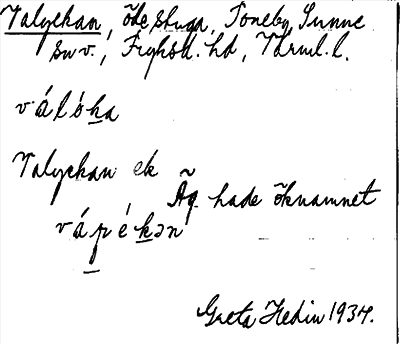 Valyckan, ödestuga, Toneby, Sunne
sn v., Fryksd. hd, Värml. l.
váló̱ka
Valyckan ek
Äg. hade öknamnet
vápékən
Greta Hedin 1934.